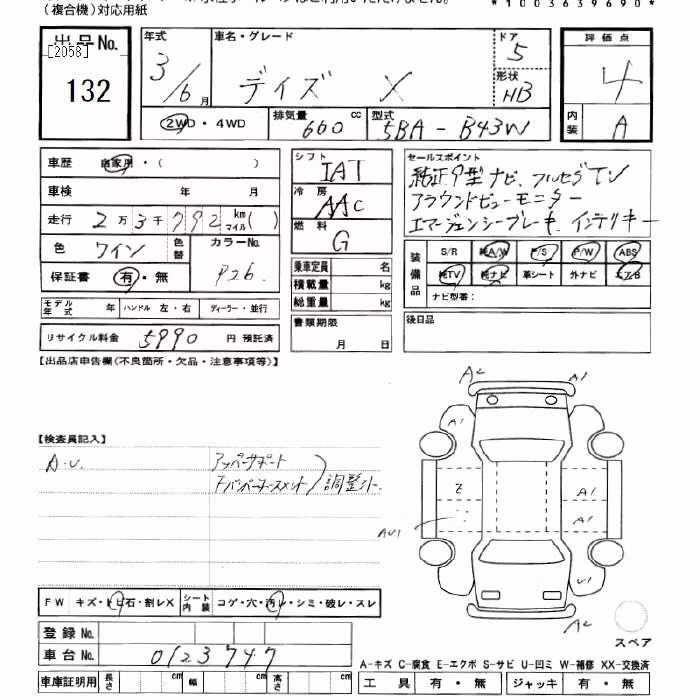 (複合機)対応用紙
*1003639690*
出品No.
[2058]
132
年式
3/6月
車名・グレード
デイズ X
ドア
5
形状
HB
2WD・4WD
排気量
660 cc
型式
5BA-B43W
評価点
4
内装
A
車歴 自家用・( )
車検 年 月
走行 2万3千792 km マイル( )
色 ワイン 色替
カラーNo.
保証書 有・無
モデル年式 年 ハンドル 左・右 ディーラー・並行
リサイクル料金 5990 円 預託済
シフト
IAT
冷房
AAC
燃料
G
乗車定員 名
積載量 kg
総重量 kg
書類期限
月 日
セールスポイント
純正9型ナビ、フルセグTV
アラウンドビューモニター
エマージェンシーブレーキ、インテリキー
装備品
S/R 純A/W P/S P/W ABS
純TV 純ナビ 革シート 外ナビ エアB
ナビ型番:
後日品
【出品店申告欄(不良箇所・欠品・注意事項等)】
【検査員記入】
A・U.
アッパーサポート
調整汁
A2 A1
A1
E A1
A1
AU1
U1
A2
スペア
FW キズ・トビ石・割レX シート内装 コゲ・穴・汚レ・シミ・破レ・スレ
登録No.
車台No. 0123747
車庫証明用 長さ cm 幅 cm 高さ cm
A-キズ C-腐食 E-エクボ S-サビ U-凹ミ W-補修 XX-交換済
工具 有・無 ジャッキ 有・無